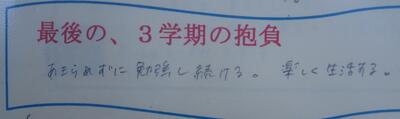 最後の、3学期の抱負
あきらめずに勉強し続ける。 楽しく生活する。